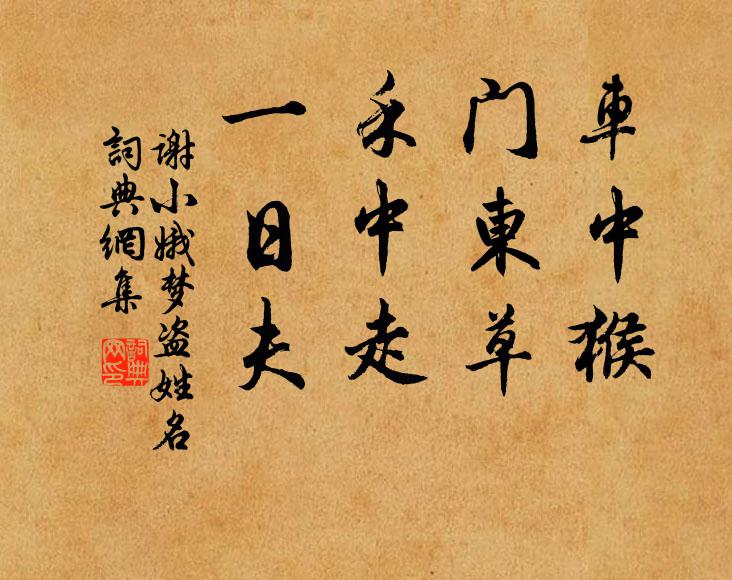 車中猴
门東草
禾中走
一日夫
谢小娥梦盗姓名
詞典網集
詞典
网印